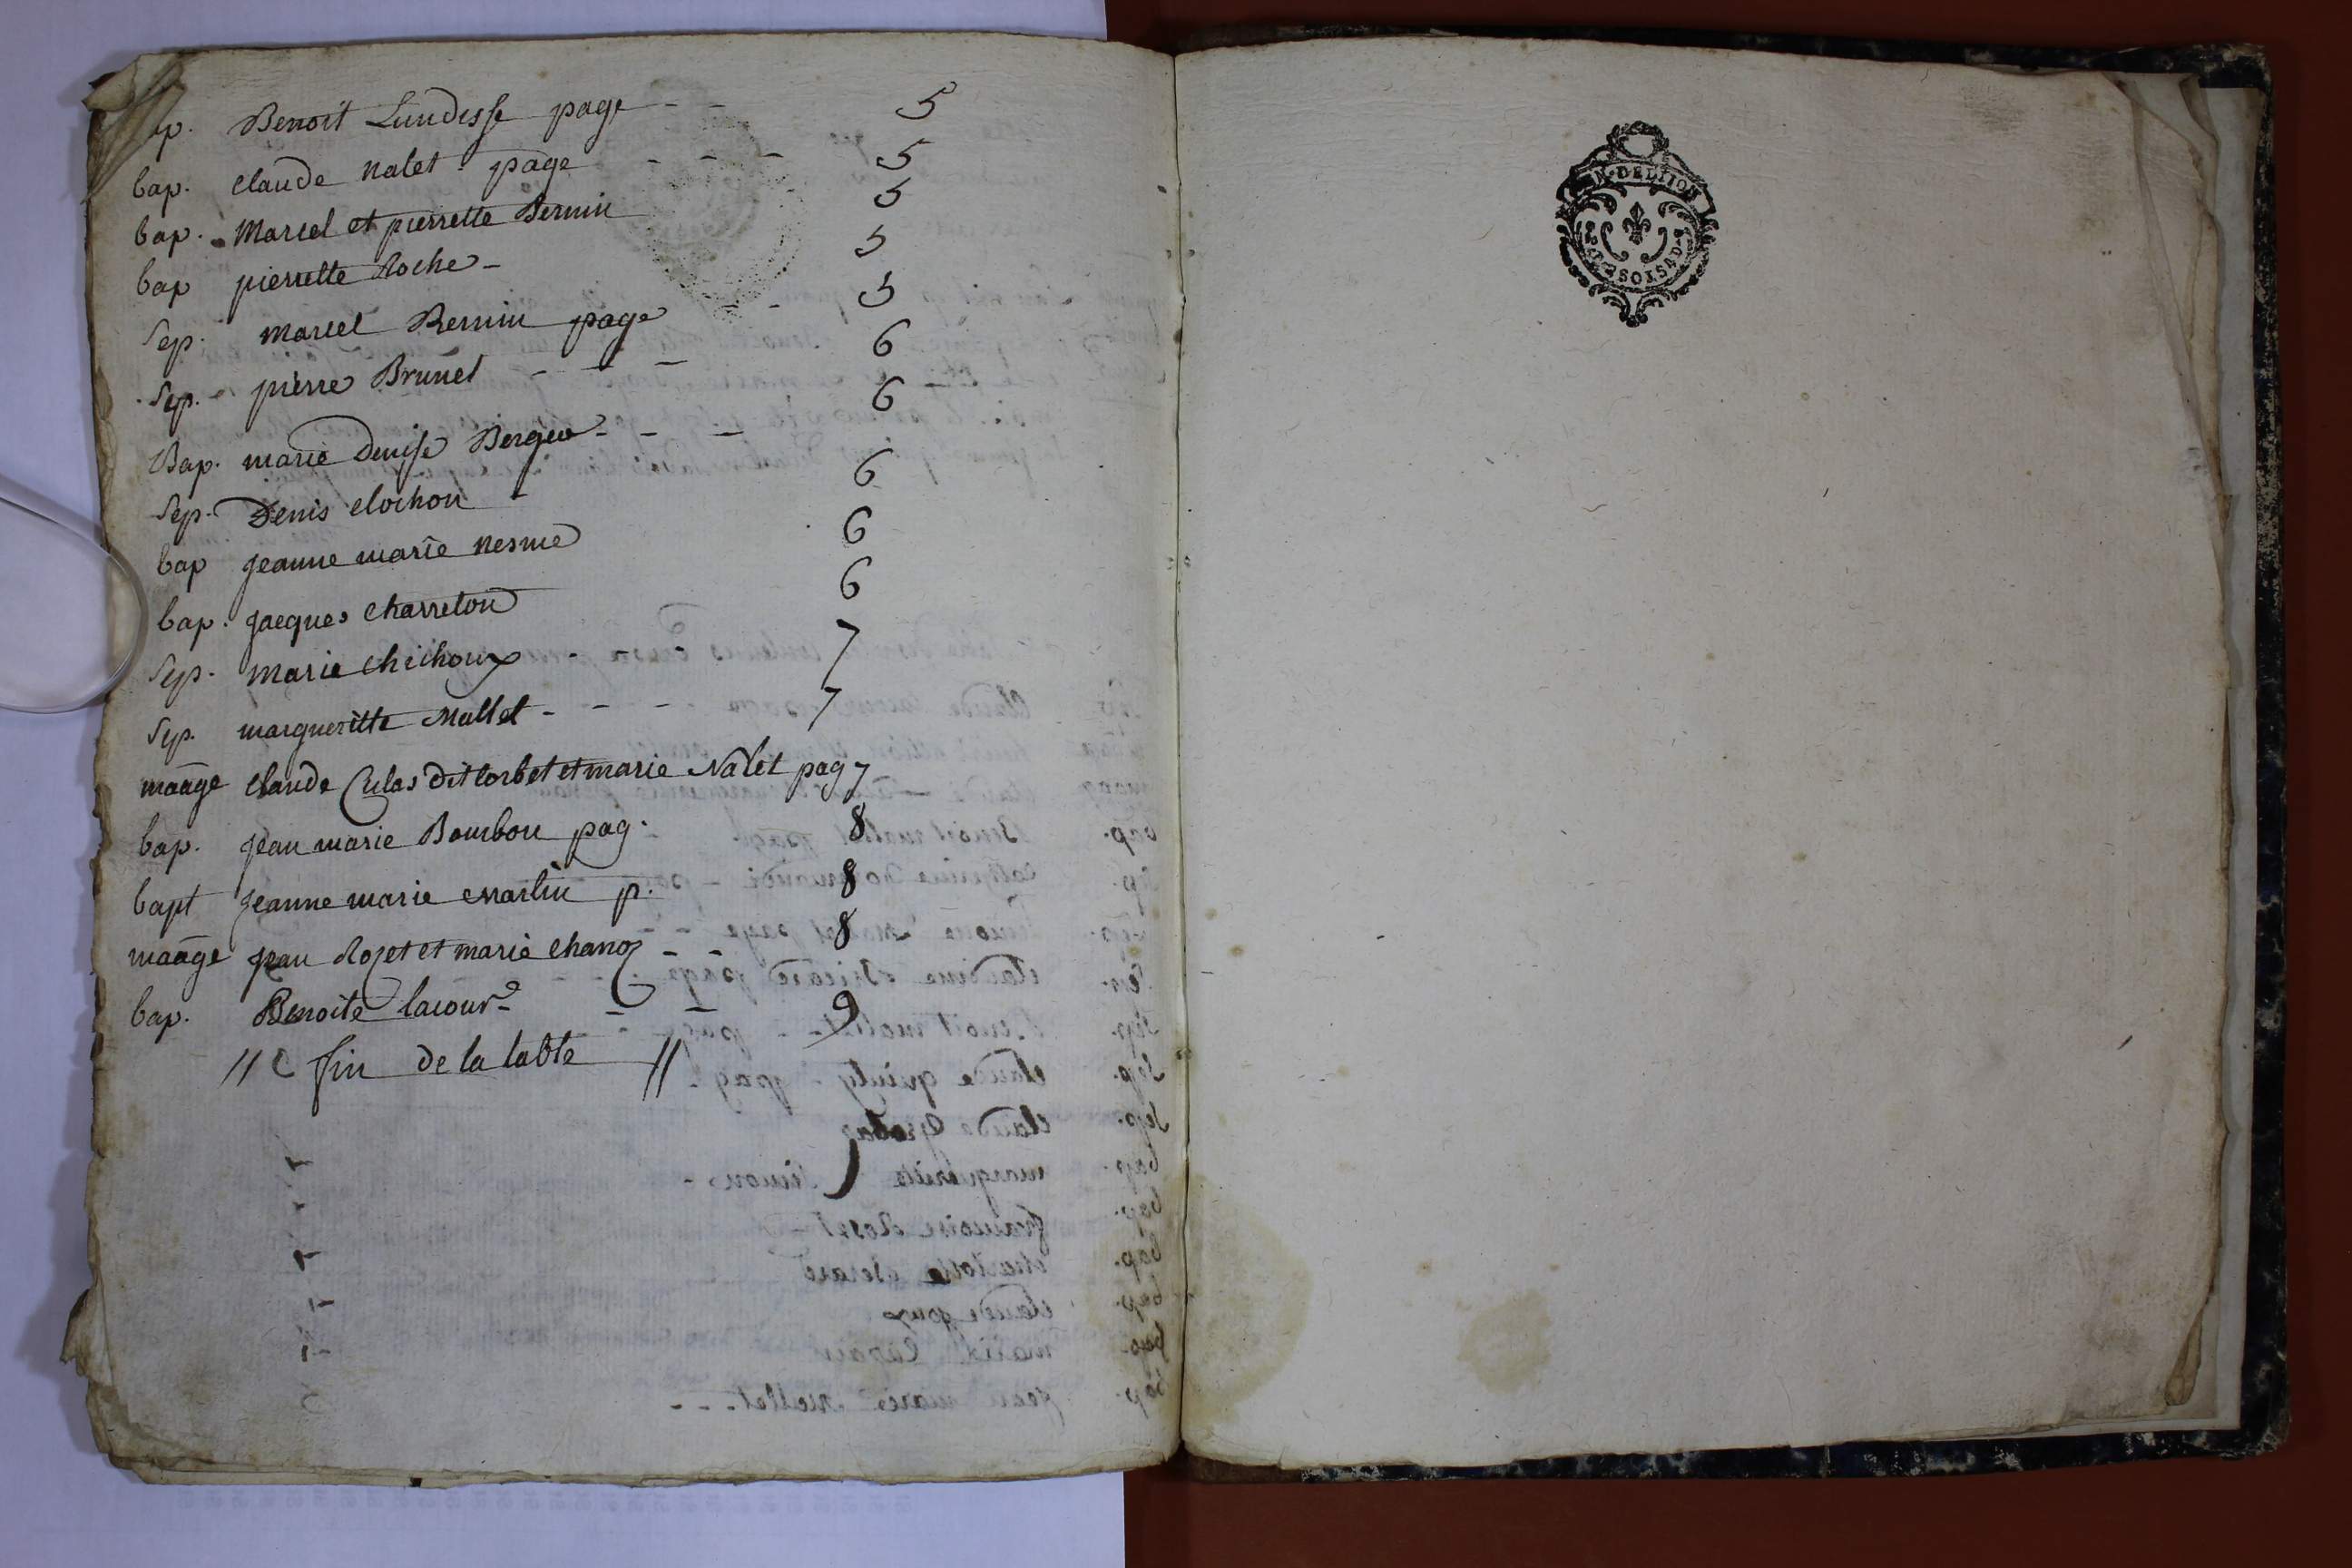 Benoit Lundisse page - - 5
bap. claude nalet page - - - 5
bap. Marcel et pierrette Bernin 5
bap pierrette Roche - 5
Sep. marcel Bernin page - - 5
Sep. pierre Brunel - - - 6
Bap. marie Denise Berger - - - 6
Sep. Denis clochon - 6
bap jeanne marie nesme 6
bap. jacques charreton 6
Sep. marie chichoux 7
Sep. margueritte Mallet - - - - 7
maage claude Culas dit corbet et marie Nalet pag 7
bap. jean marie Bombon pag. 8
bapt jeanne marie Martin p. 8
maage jean Rozet et marie chanoz - - 8
bap. Benoite lacour - - - 9
// fin de la table //